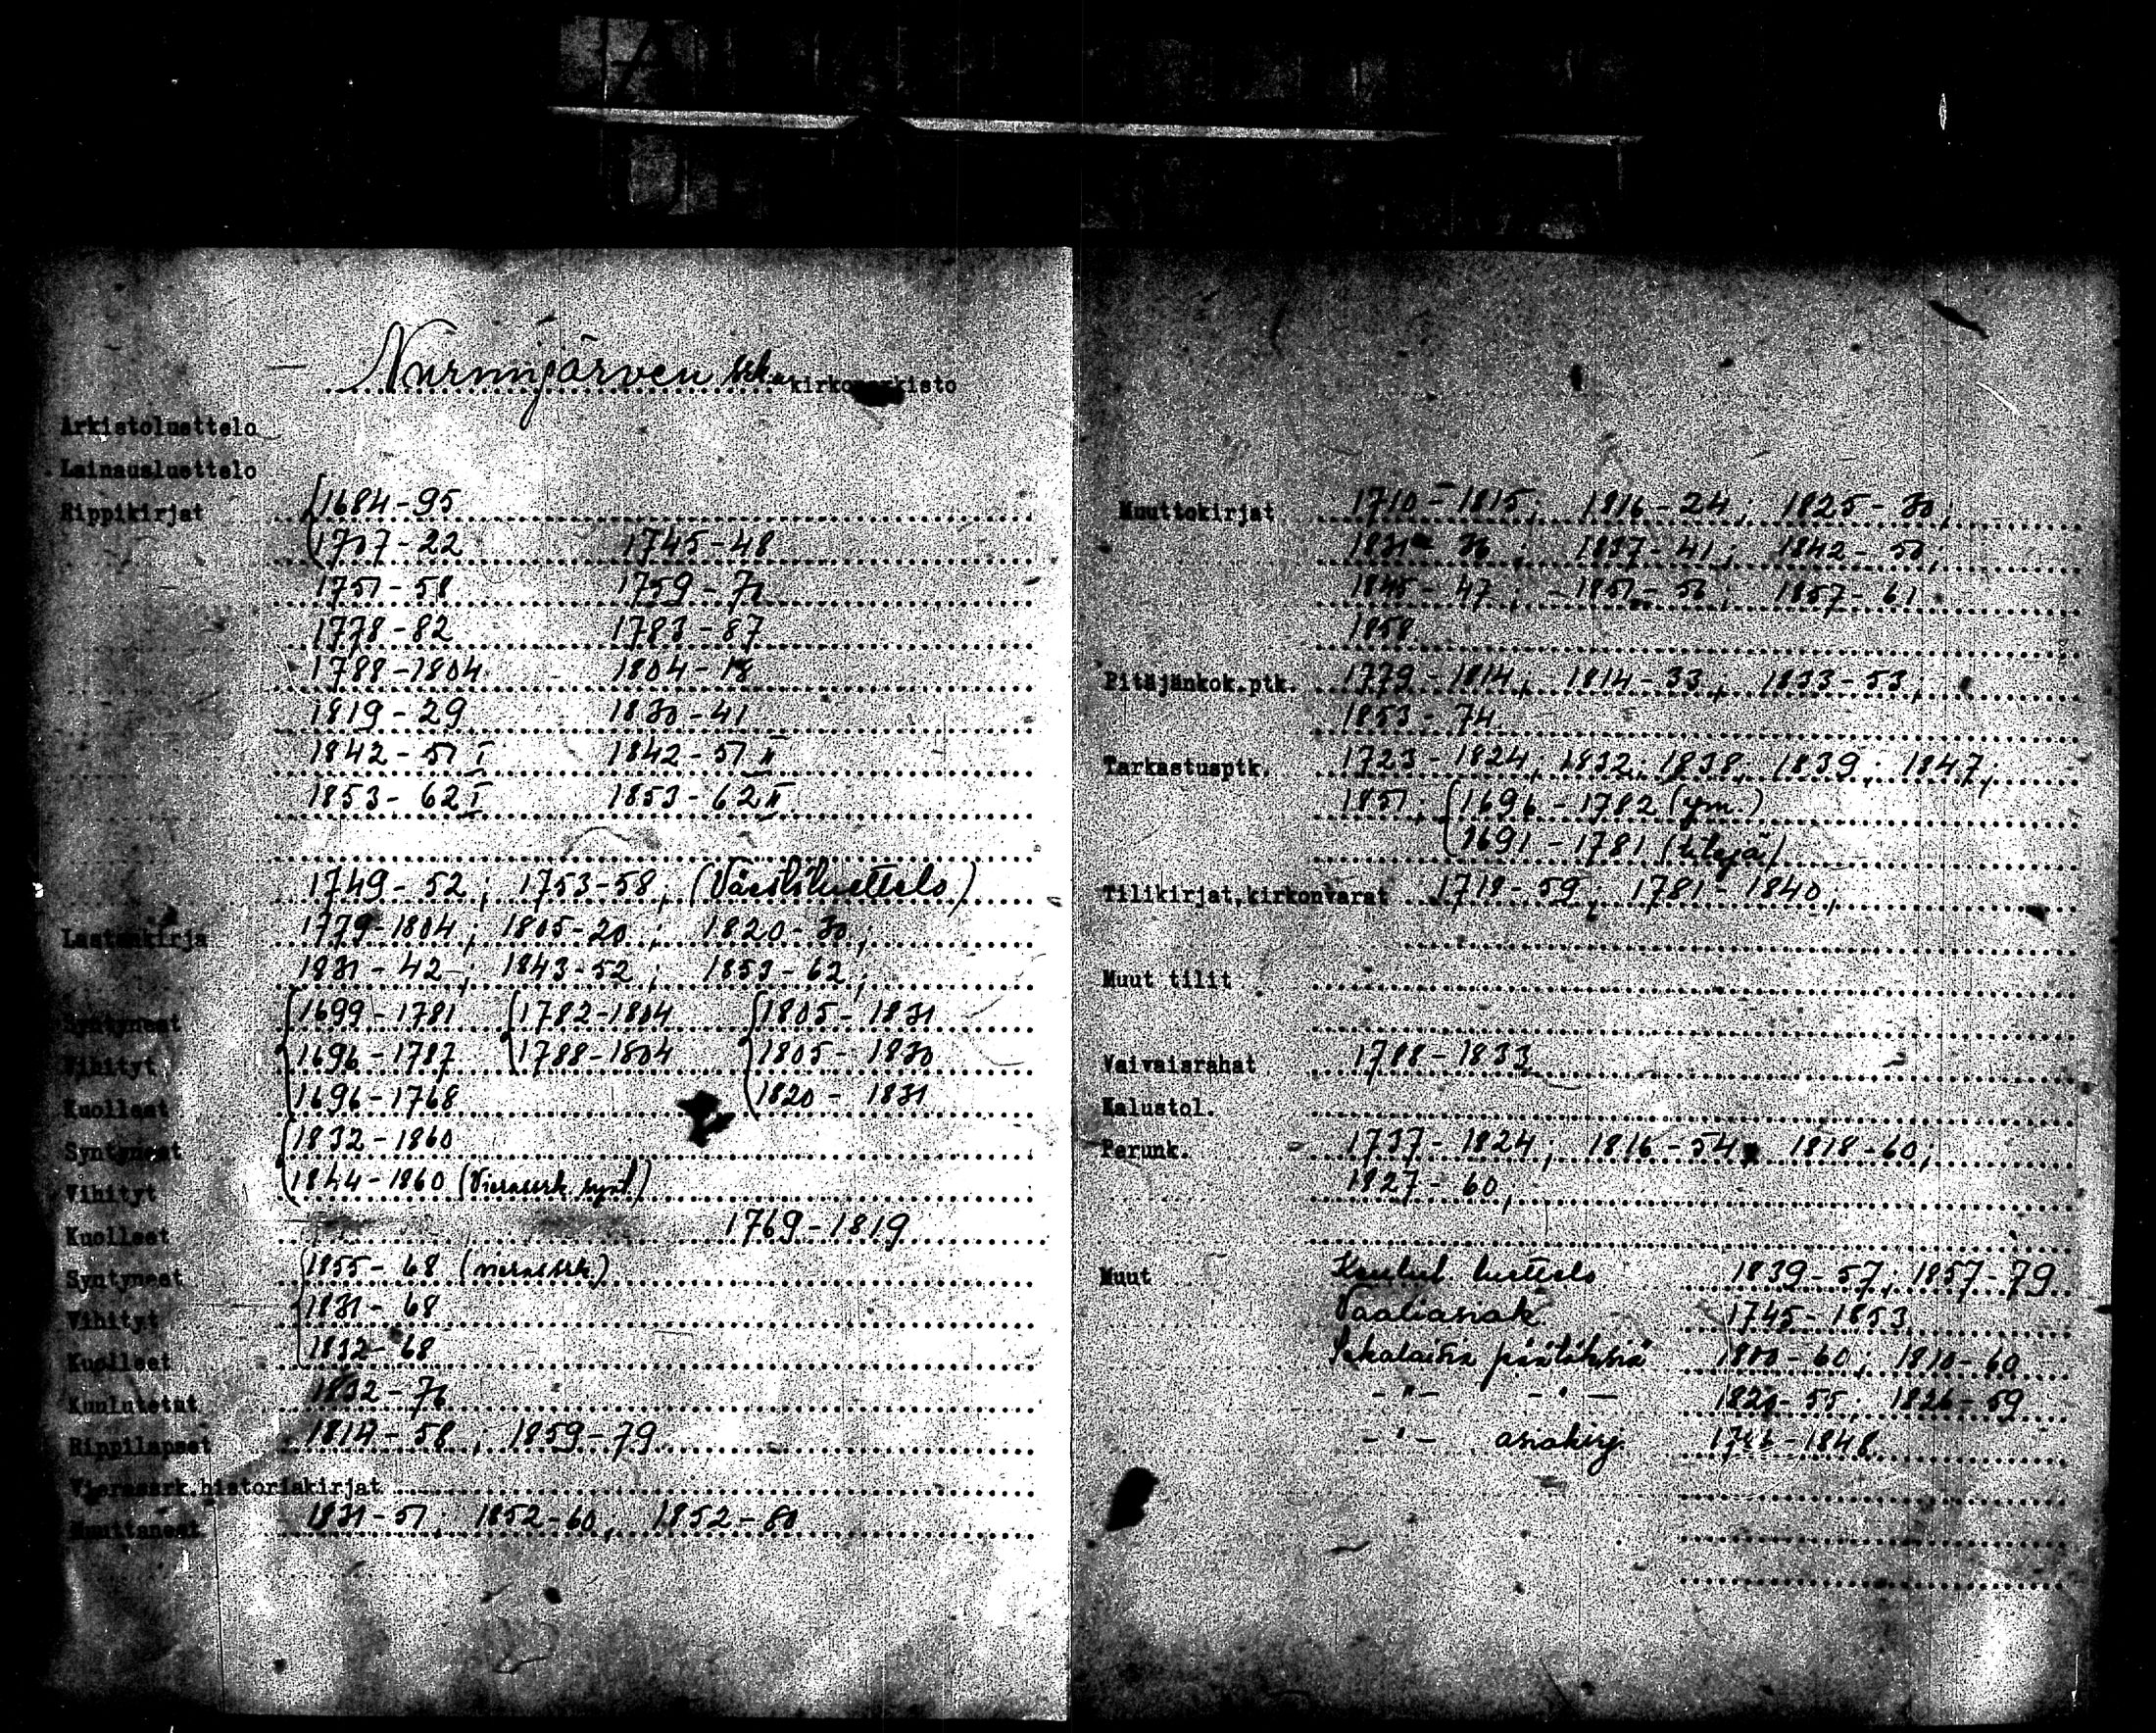 Nurmijärven srk. kirkonarkisto
Arkistoluettelo
Lainausluettelo
Rippikirjat 1684-95
1707-22 1745-48
1751-58 1759-71
1778-82 1783-87
1788-1804 1804-18
1819-29 1830-41
1842-51 I 1842-51 II
1853-62 I 1853-62 II
1749-52; 1753-58; (Väestöluettelo)
Lastenkirja 1779-1804; 1805-20; 1820-30;
1831-42; 1843-52; 1853-62;
Syntyneet 1699-1781 1782-1804 1805-1831
Vihityt 1696-1787 1788-1804 1805-1830
Kuolleet 1696-1768 1820-1831
Syntyneet 1832-1860
Vihityt 1844-1860 (Vierassrk synt.)
Kuolleet 1769-1819
Syntyneet 1855-68 (vierassrk.)
Vihityt 1831-68
Kuolleet 1832-68
Kuulutetut 1832-76
Rippilapset 1814-58; 1859-79
Vierassrk.historiakirjat
Muuttaneet 1831-51; 1852-60; 1852-80
Muuttokirjat 1710-1815; 1816-24; 1825-30;
1831-36; 1837-41; 1842-50;
1845-47; 1851-56; 1857-61
1858
Pitäjänkok.ptk. 1779-1814; 1814-33; 1833-53;
1853-74.
Tarkastusptk. 1723-1824; 1832; 1838, 1839; 1847;
1851; 1696-1782 (ym.)
1691-1781 (tilejä)
Tilikirjat,kirkonvarat 1718-59; 1781-1840;
Muut tilit
Vaivaisrahat 1788-1833
Kalustol.
Perunk. 1737-1824; 1816-54; 1818-60;
1827-60;
Muut Kuulut. luettelo 1839-57; 1857-79
Vaaliasiak. 1745-1853
Sekalaisia päätöksiä 1800-60; 1810-60
-"- -"- 1820-55; 1826-59
-"- asiakirj. 1746-1848